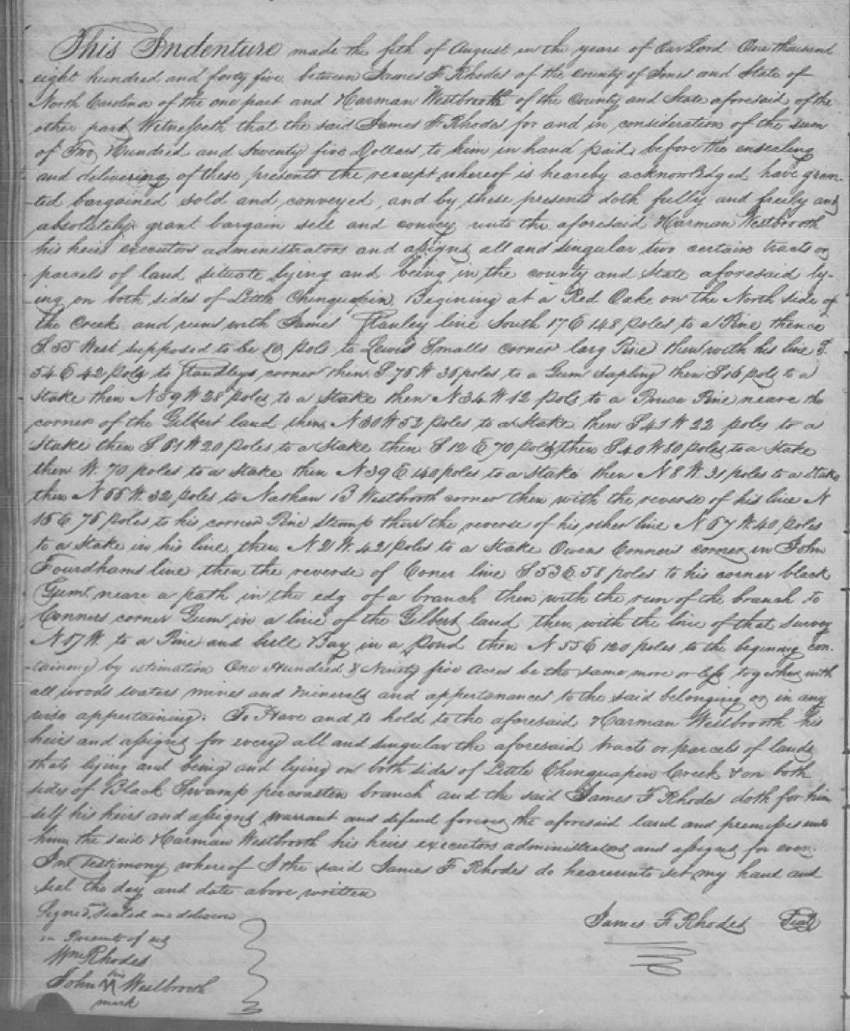 This Indenture made the fith of August in the years of Our Lord One thousand
eight hundred and forty five between James F Rhodes of the County of Jones and State of
North Carolina of the one part and Harman Westbrook of the County and State aforesaid of the
other part Witnesseth that the said James F Rhodes for and in consideration of the sum
of Two Hundred and twenty five Dollars to him in hand paid before the ensealing
and delivering of these presents the receipt whereof is heareby acknowledged have gran-
-ted bargained sold and conveyed, and by these presents doth fully and freely and
absolutely grant bargain sell and convey unto the aforesaid Harman Westbrook
his heirs executors administrators and assigns all and singular two certain tracts or
parcels of land situate lying and being in the county and State aforesaid ly-
-ing on both sides of Little Chinquapin Begining at a Red Oake on the North side of
the Creek and runs with James line South 17 E 148 poles to a Pine thence
S 55 West supposed to be poles to Lewis Smalls corner larg Pine then with his line S.
54 E 42 poles to corner then S 76 W 36 poles to a Gum Sapling then S 16 poles to a
Stake then N 39 W 28 poles to a Stake then N 34 W 12 pols to a Pine neare the
corner of the Gilbert land then N 30 W 52 poles to a Stake then S 41 W 22 poles to a
Stake then S 61 W 20 poles to a Stake then S 12 E 70 poles then S 40 W 80 poles to a Stake
then W. 70 poles to a Stake then N 39 E 140 poles to a Stake then N 8 W. 31 poles to a Stake
then N 55 W. 32 poles to Nathan B Westbrook corner then with the reverse of his line N
16 E 75 poles to his corner Pine Stump then the reverse of his other line N 67 W. 40 poles
to a Stake in his line then N 21 W. 42 poles to a Stake Owens Conners corner in John
line then the reverse of Coner line S 53 E 58 poles to his corner black
Gum neare a path in the edg of a branch then with the run of the branch to
Conners corner Gum in a line of the Gilbert land then with the line of that survey
N 17 W. to a Pine and Bay in a Pond then N 55 E 120 poles to the begining con-
-taining by estimation One Hundred & Ninety five Acres be the same more or less together with
all woods waters mines and minerals and appertenances to the said belonging or in any
wise appertaining. To Have and to hold to the aforesaid Harman Westbrook his
heirs and assigns for every all and singular the aforesaid tracts or parcels of lands
thats lying and being and lying on both sides of Little Chinquapin Creek & on both
sides of Black Swamp branch and the said James F Rhodes doth for him
self his heirs and assigns warrant and defend forever the aforesaid land and premises unto
him the said Harman Westbrook his heirs executors administrators and assigns for ever.
In testimony whereof I the said James F Rhodes do heareunto set my hand and
seal the day and date above written
Signed, Sealed and delivered
in Presents of us
James F Rhodes Seal
Wm Rhodes
his
John Westbrook
mark